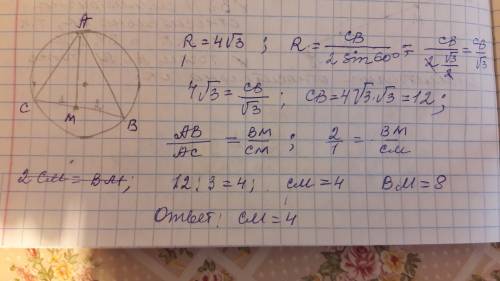 A
C
M
B
R = 4√3 ; R = CB / 2 sin 60° = CB / 2 √3/2 = CB / √3
4√3 = CB / √3 ; CB = 4√3 · √3 = 12 ;
AB / AC = BM / CM ; 2 / 1 = BM / CM
2 CM = BM ; 12 : 3 = 4 ; CM = 4 BM = 8
Ответ: CM = 4